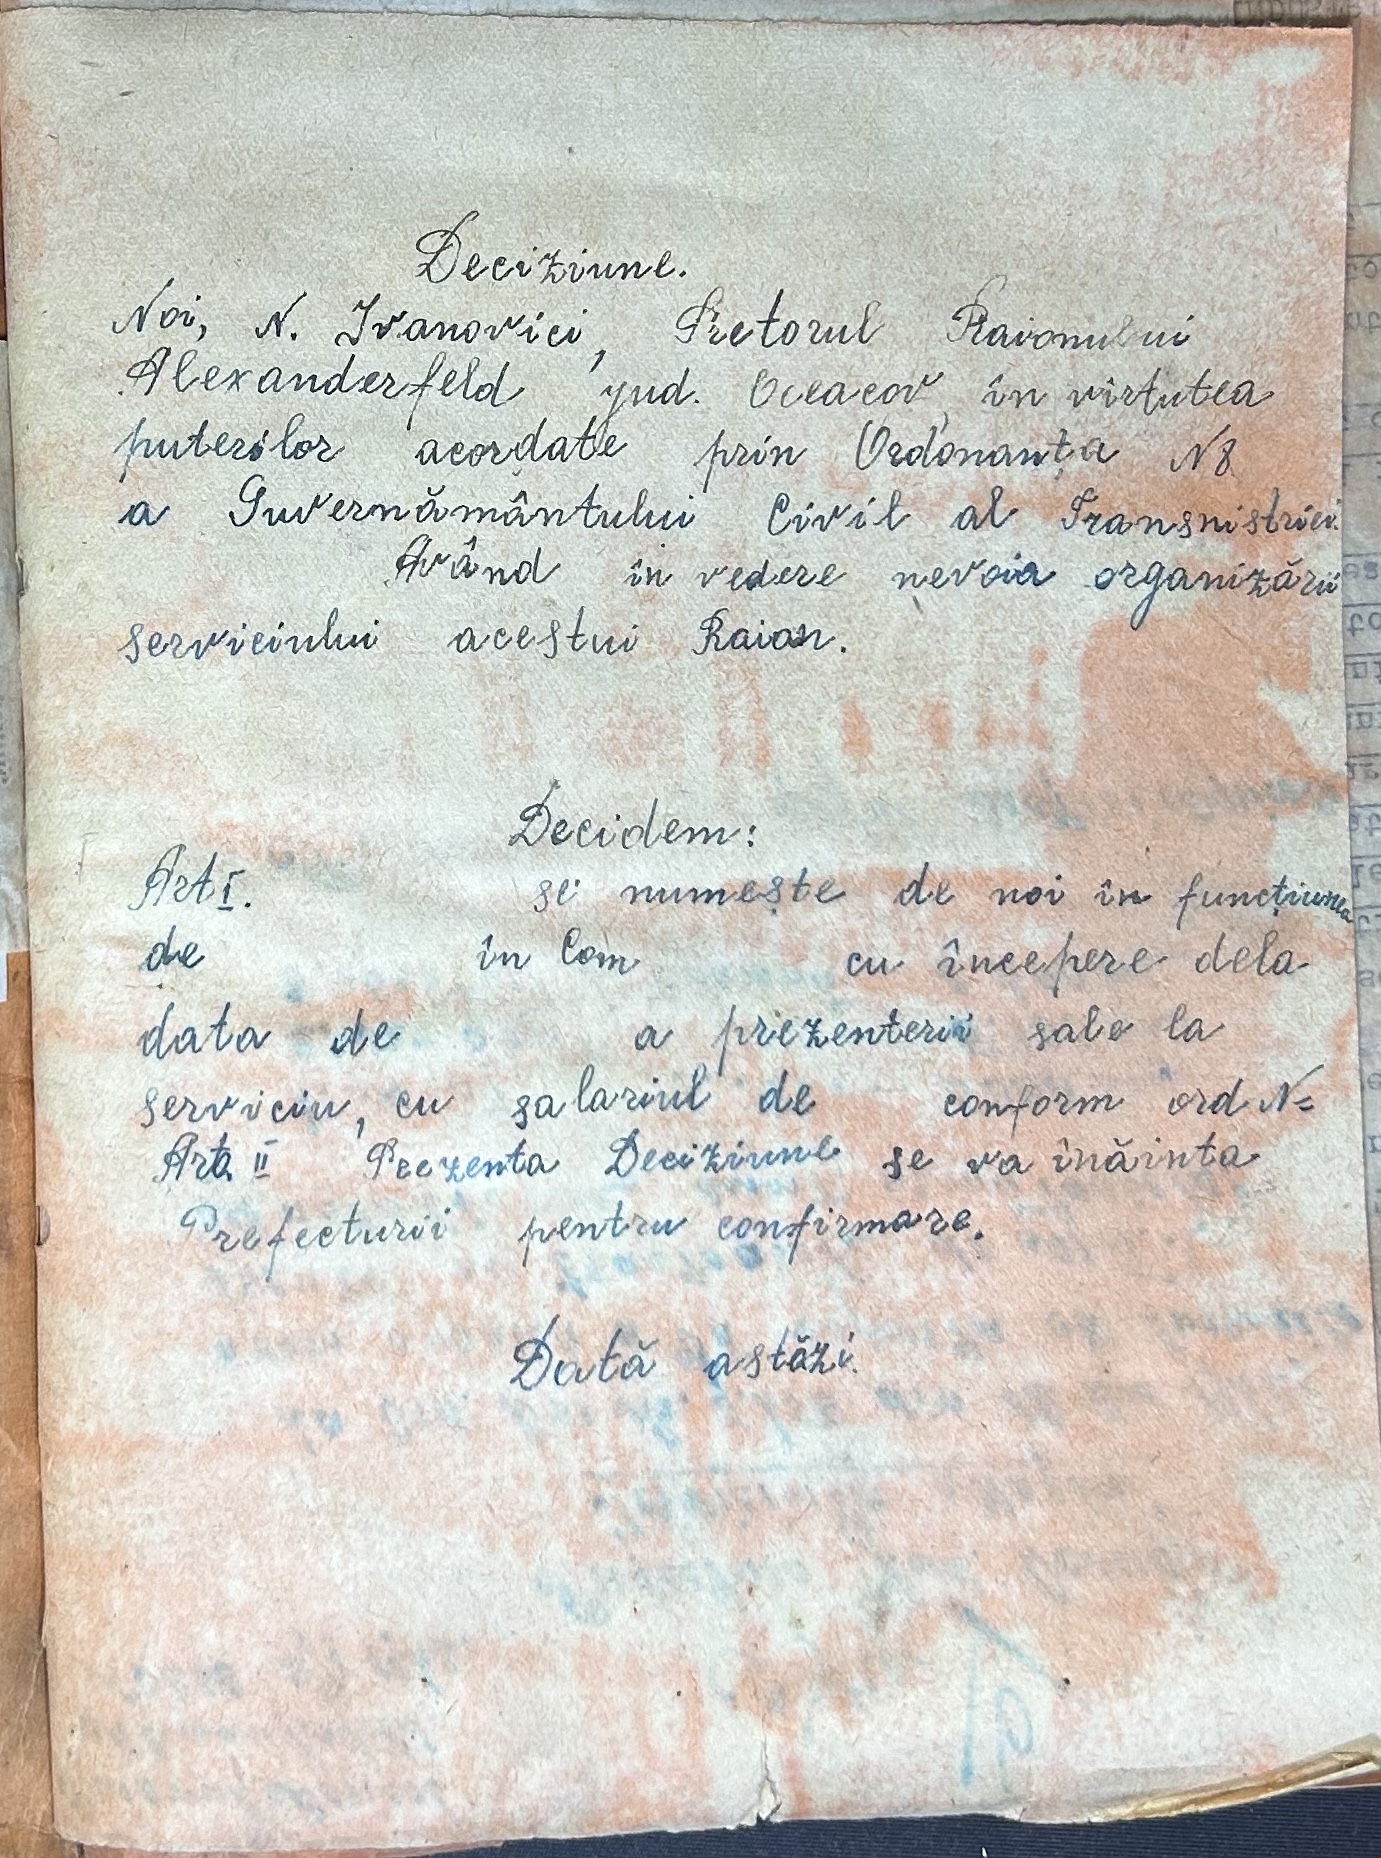 Deciziune.
Noi, N. Ivanovici, Pretorul Raionului
Alexanderfeld jud. Oceacov, în virtutea
puterilor acordate prin Ordonanța N8
a Guvernământului Civil al Transnistriei.
Având în vedere nevoia organizării
serviciului acestui Raion.
Decidem:
Art I. se numește de noi în funcțiunea
de în Com cu începere dela
data de a prezenterii sale la
serviciu, cu salariul de conform ord N=
Art. II Prezenta Deciziune se va înăinta
Prefecturii pentru confirmare.
Dată astăzi.